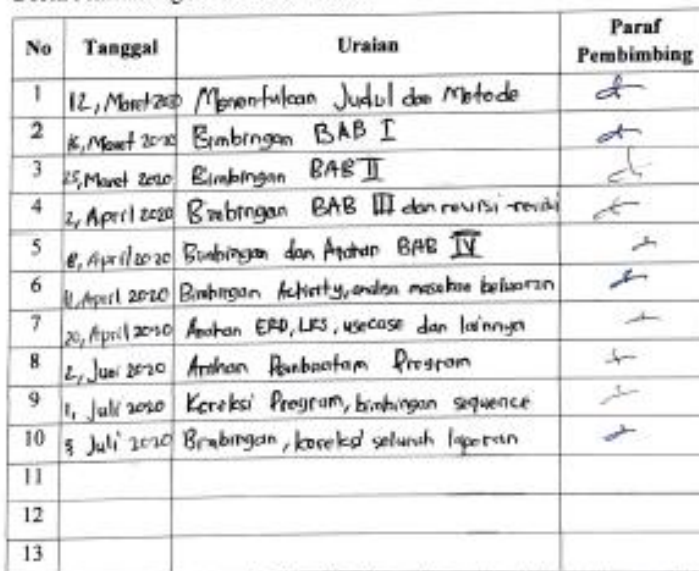 No Tanggal Uraian Paraf Pembimbing
1 12, Maret 2020 Menentukan Judul dan Metode
2 16, Maret 2020 Bimbingan BAB I
3 25, Maret 2020 Bimbingan BAB II
4 2, April 2020 Bimbingan BAB III dan revisi-revisi
5 8, April 2020 Bimbingan dan Arahan BAB IV
6 April 2020 Bimbingan Activity, masukan keluaran
7 20, April 2020 Arahan ERD, LRS, usecase dan lainnya
8 2, Juni 2020 Arahan Pembuatan Program
9 1, Juli 2020 Koreksi Program, bimbingan sequence
10 Juli 2020 Bimbingan, koreksi seluruh laporan
11
12
13